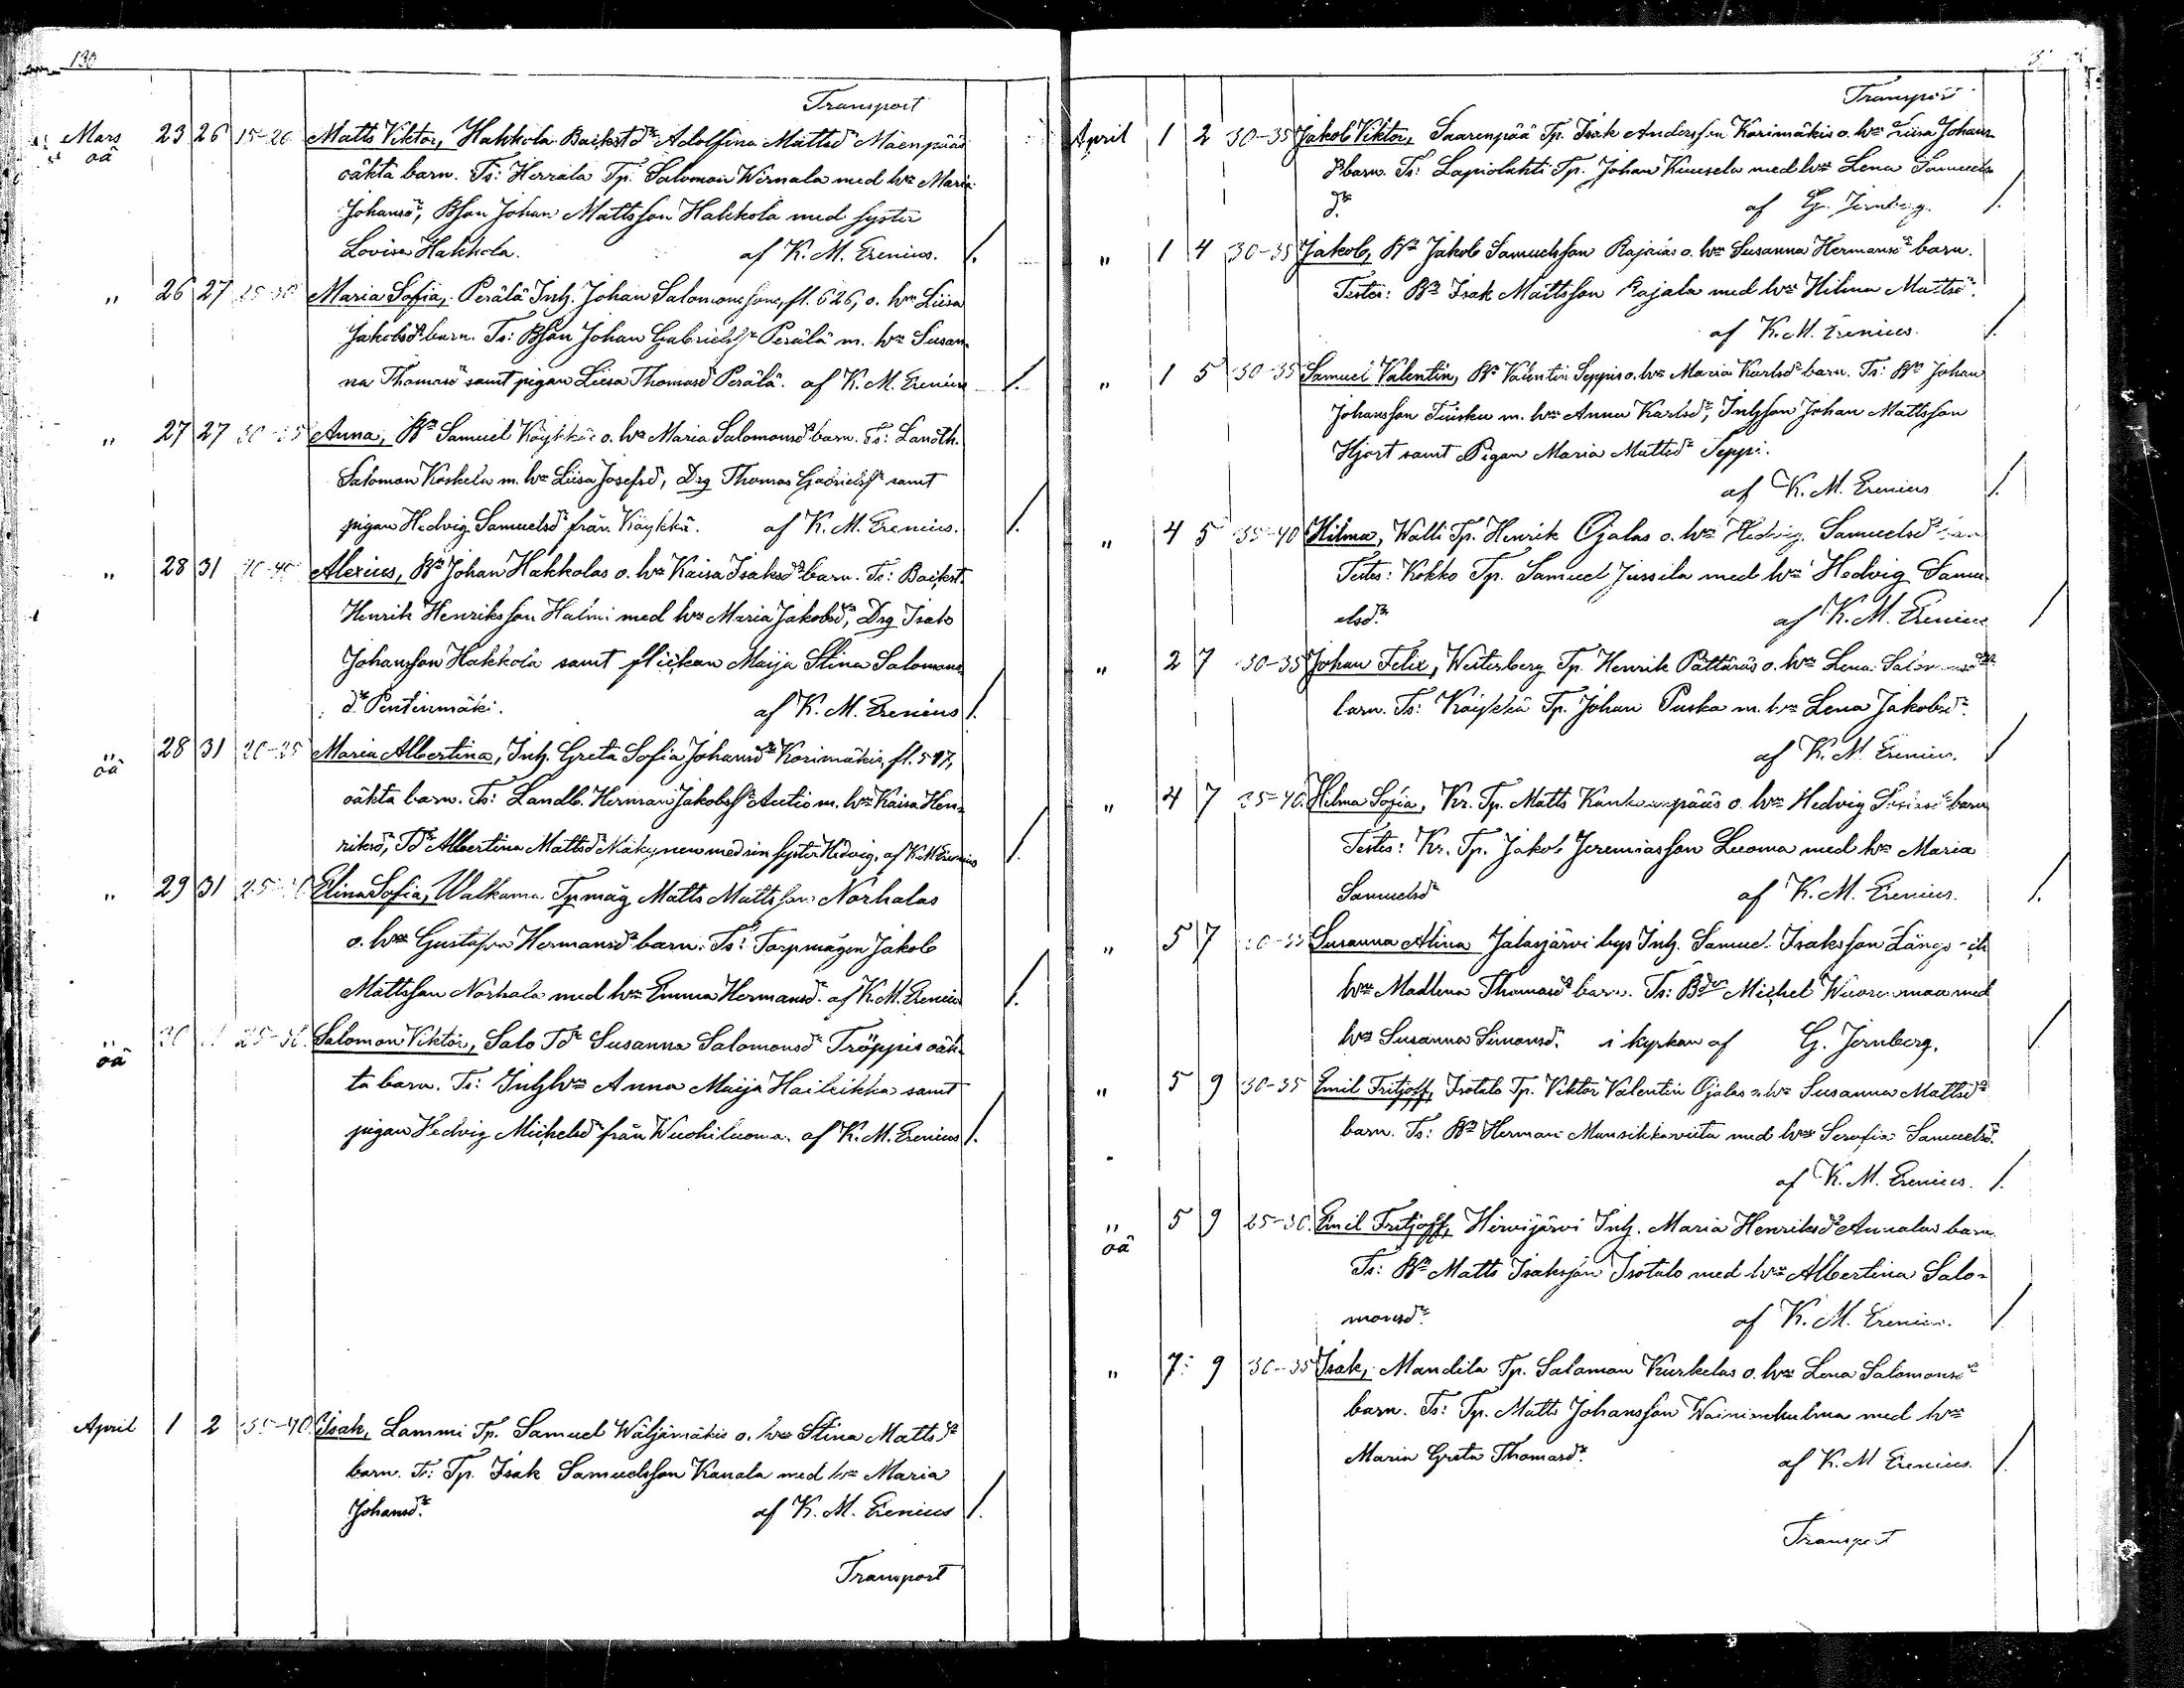 130
Transport
Mars 23 26 15-20 Matts Viktor, Hakkola Backstdr Adolfina Mattsdr Mäenpääs
oä oäkta barn. Ts: Herrala Tp. Salomon Wirnala med hru Maria
Johansdr, Bson Johan Mattsson Hakkola med syster
Lovisa Hakkola. af K. M. Erenius. /.
" 26 27 25-30 Maria Sofia, Perälä Inh. Johan Salomonssons, fl. 626, o. hru Liisa
Jakobsdr barn. Ts: Bson Johan Gabrielss. Perälä m. hru Susan-
na Thomasdr samt pigan Liisa Thomasdr Perälä. af K. M. Erenius /.
" 27 27 30-35 Anna, Bn Samuel Köykkäs o. hru Maria Salomonsdr barn. Ts: Landth.
Salomon Koskela m. hru Liisa Josefsdr, Drg Thomas Gabrielss. samt
pigan Hedvig Samuelsdr från Köykkä. af K. M. Erenius. /.
" 28 31 40-45 Alexius, Bn Johan Hakkolas o. hru Kaisa Isaksdr barn. Ts: Backst.
Henrik Henriksson Halmi med hru Maria Jakobsdr, Drg Isak
Johansson Hakkola samt flickan Maija Stina Salomons-
dr Pentinmäki. af K. M. Erenius /.
" 28 31 20-25 Maria Albertina, Inh. Greta Sofia Johansdr Korimäkis, fl. 517,
oä oäkta barn. Ts: Landb. Herman Jakobss. Autio m. hru Kaisa Hen-
riksdr, Tdr Albertina Mattsdr med sin syster Hedvig, af K M Erenius /.
" 29 31 25-30 Elina Sofia, Walkama Tpmåg Matts Mattsson Norhalas
o. hru Gustafva Hermansdr barn. Ts: Torpmågen Jakob
Mattsson Norhala med hru Emma Hermansdr. af K. M. Erenius /.
" 30 31 25-30 Salomon Viktor, Salo Tdr Susanna Salomonsdr Tröppis oäk-
oä ta barn. Ts: Inhhru Anna Maija Haileikka samt
pigan Hedvig Michelsdr från Wuohiluoma. af K. M. Erenius /.
April 1 2 35-40 Isak, Lammi Tp. Samuel Wäljämäkis o. hru Stina Mattsdr
barn. Ts: Tp. Isak Samuelsson Kanala med hru Maria
Johansdr. af K. M. Erenius /.
Transport
Transport
April 1 2 30-35 Jakob Viktor, Saarenpää Tp. Isak Andersson Karimäkis o. hru Liisa Johans-
dr barn. Ts: Lapiolahti Tp. Johan Kuusela med hru Lena Samuels-
dr. af G. Jernberg. /.
" 1 4 30-35 Jakob, Bn Jakob Samuelsson Rajalas o. hru Susanna Hermansdr barn.
Testes: Bn Isak Mattsson Rajala med hru Hilma Mattsdr.
af K. M. Erenius /.
" 1 5 30-35 Samuel Valentin, Bn Valentin Seppis o. hru Maria Karlsdr barn. Ts: Bn Johan
Johansson Tuisku m. hru Anna Karlsdr, Inhson Johan Mattsson
Hjort samt Pigan Maria Mattsdr Seppi.
af K. M. Erenius /.
" 4 5 35-40 Hilma, Walli Tp. Henrik Ojalas o. hru Hedvig Samuelsdr barn
Testes: Kokko Tp. Samuel Jussila med hru Hedvig Samu-
elsdr. af K. M. Erenius /
" 2 7 30-35 Johan Felix, Westerberg Tp. Henrik Pättäräs o. hru Lena Salomonsdr
barn. Ts: Köykkä Tp. Johan Puska m. hru Lena Jakobsdr.
af K. M. Erenius. /
" 4 7 35-40 Hilma Sofia, Kr. Tp. Matts Kankaanpääs o. hru Hedvig barn
Testes: Kr. Tp. Jakob Jeremiasson Luoma med hru Maria
Samuelsdr af K. M. Erenius. /.
" 5 7 30-35 Susanna Alina Jalasjärvi bys Inh. Samuel Isaksson Längs och
hru Madlena Thomasdr barn. Ts: Bdr Michel Wuorenmaa med
hru Susanna Simonsdr. i kyrkan af G. Jernberg. /.
" 5 9 30-35 Emil Fritjoff, Isotalo Tp. Viktor Valentin Ojalas o. hru Susanna Mattsdr
barn. Ts: Bn Herman Mansikkaviita med hru Serafia Samuelsdr.
af K. M. Erenius. /.
" 5 9 25-30 Emil Fritjoff, Hirvijärvi Inh. Maria Henriksdr Annalas barn.
oä Ts: Bn Matts Isaksson Isotalo med hru Albertina Salo-
monsdr. af K. M. Erenius. /
" 7 9 30-35 Isak, Mandila Tp. Salomon Kurkelas o. hru Lena Salomonsdr
barn. Ts: Tp. Matts Johansson Wainionkulma med hru
Maria Greta Thomasdr. af K. M. Erenius. /.
Transport